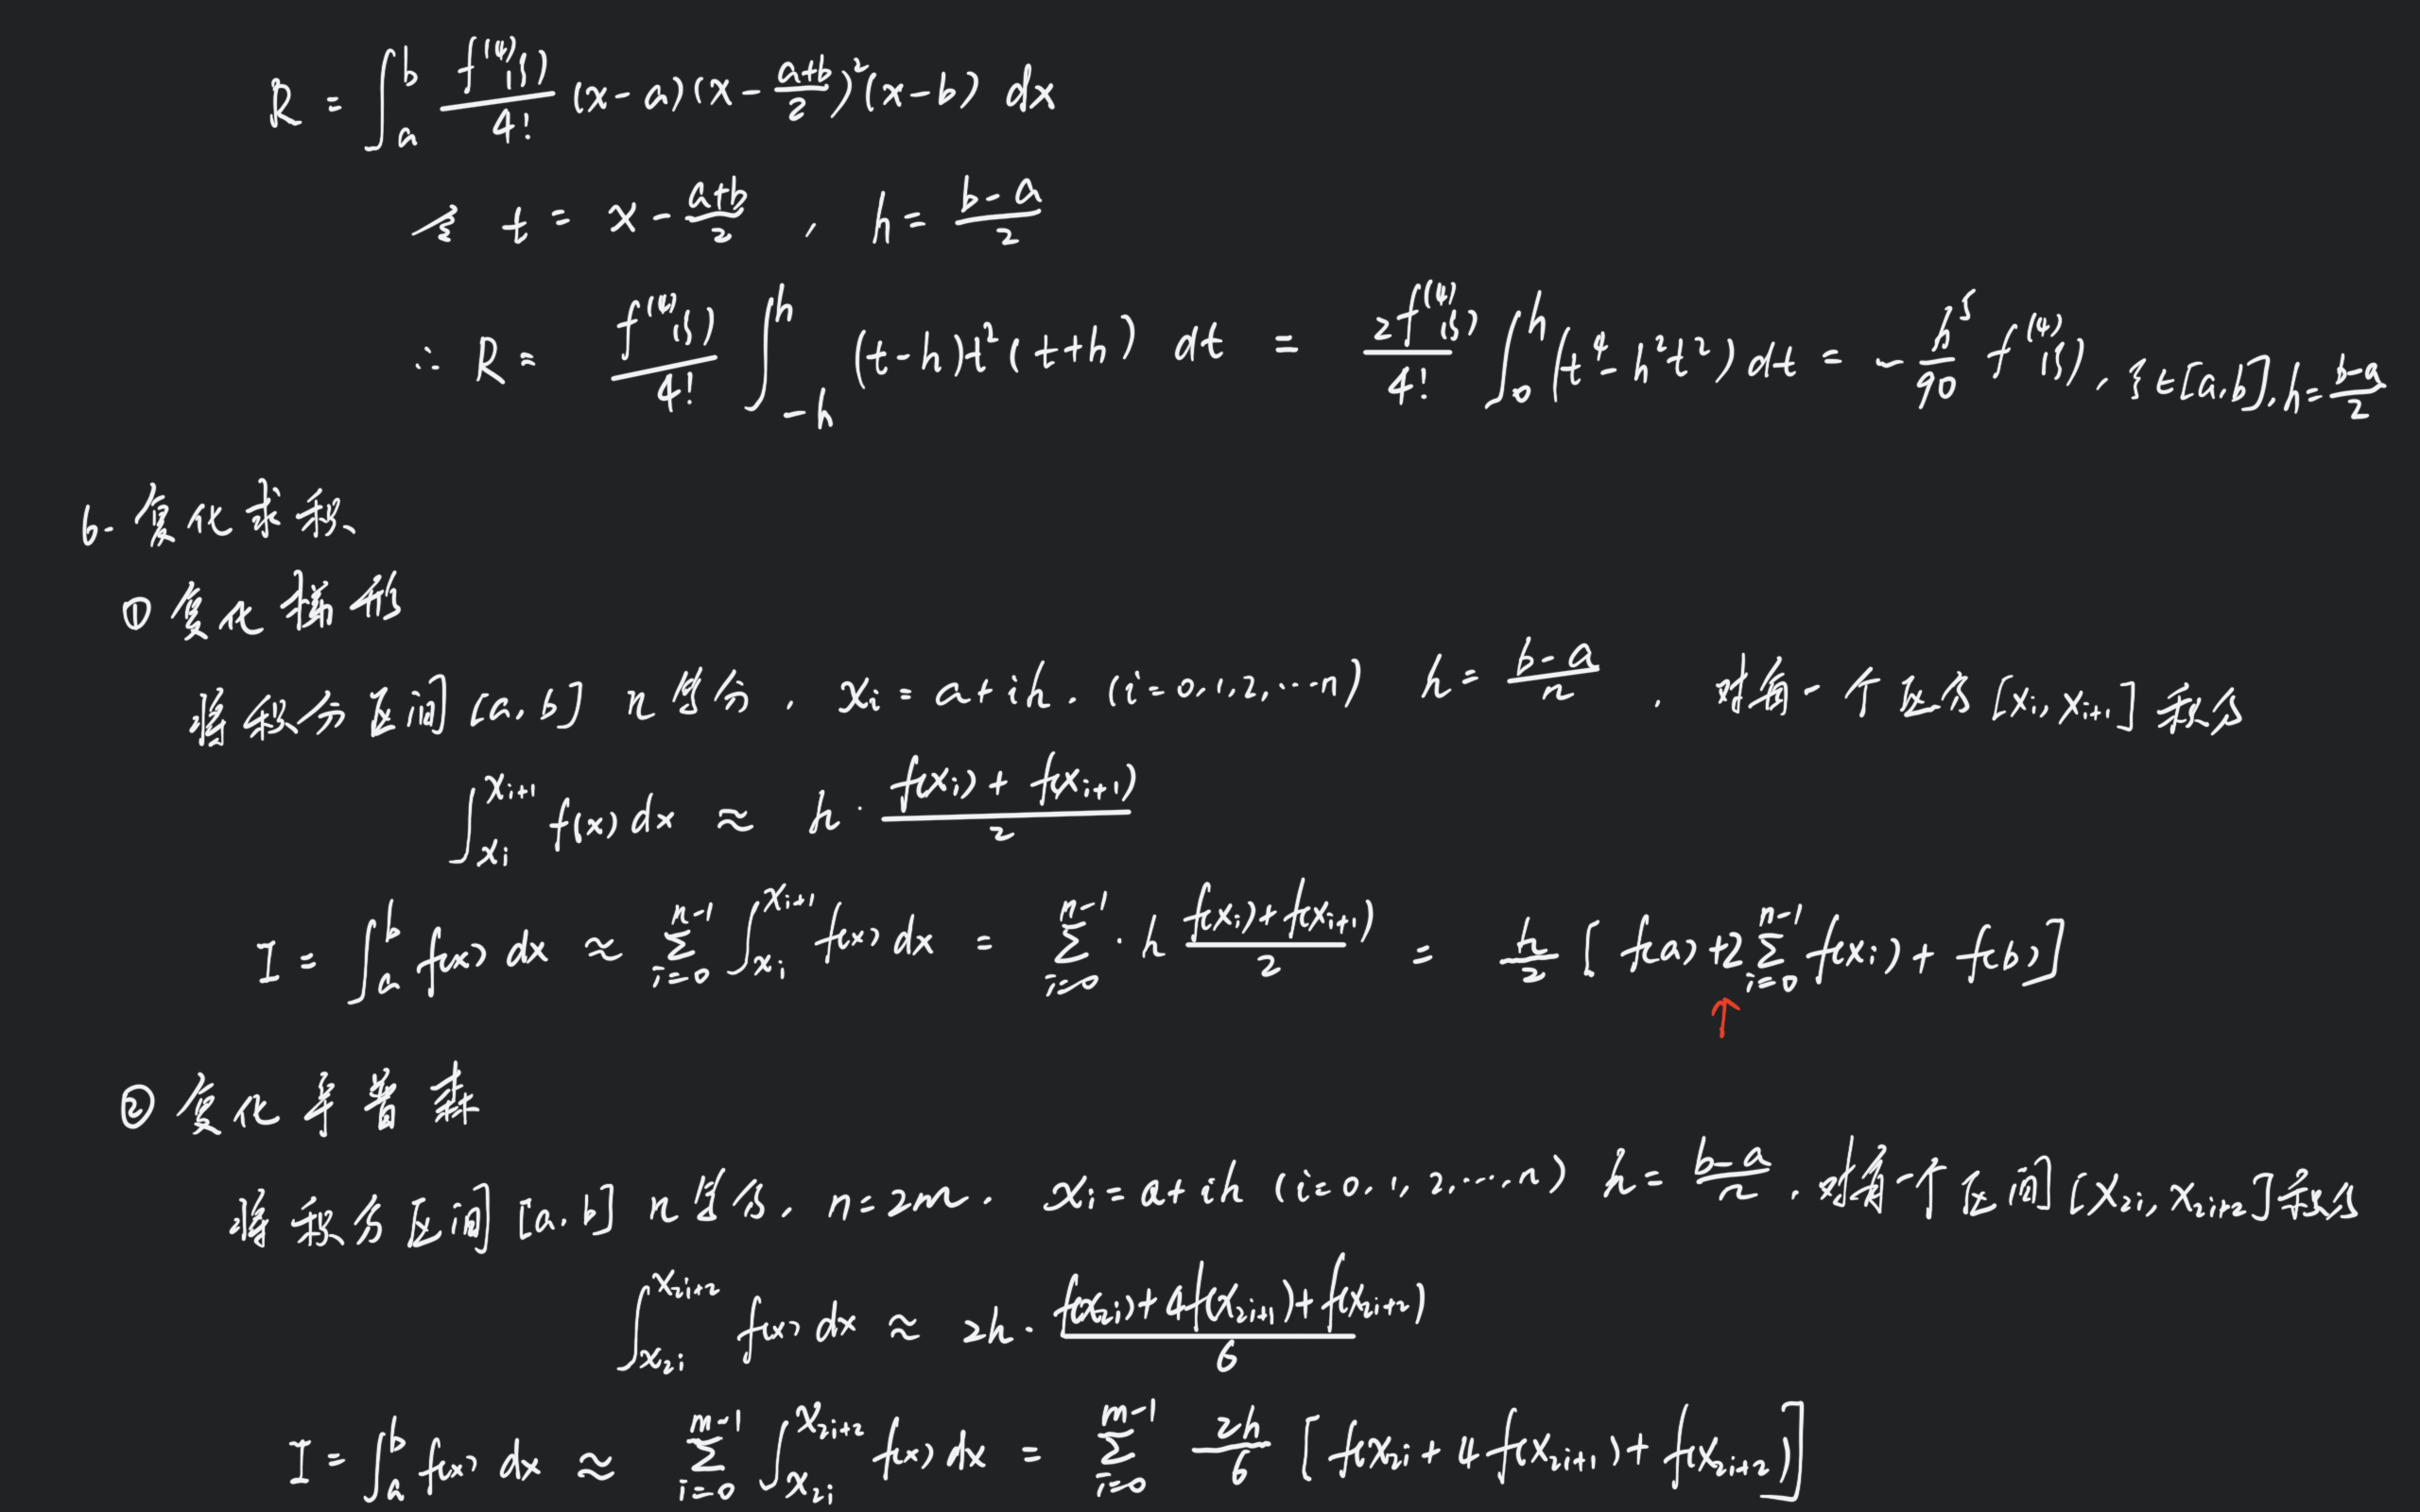 R = ∫_a^b f^{(4)}(ξ)/4! (x-a)(x-(a+b)/2)^2(x-b) dx
令 t = x - (a+b)/2 , h = (b-a)/2
∴ R = f^{(4)}(ξ)/4! ∫_{-h}^h (t-h)t^2(t+h) dt = 2f^{(4)}(ξ)/4! ∫_0^h (t^4-h^2t^2) dt = -h^5/90 f^{(4)}(ξ), ξ∈[a,b], h=(b-a)/2
6. 复化求积
① 复化梯形
将积分区间[a,b] n等分, x_i = a+ih. (i=0,1,2,…n) h = (b-a)/n , 对每一个区分[x_i, x_{i+1}]积分
∫_{x_i}^{x_{i+1}} f(x) dx ≈ h · (f(x_i)+f(x_{i+1}))/2
I = ∫_a^b f(x) dx ≈ ∑_{i=0}^{n-1} ∫_{x_i}^{x_{i+1}} f(x) dx = ∑_{i=0}^{n-1} · h (f(x_i)+f(x_{i+1}))/2 = h/2 [f(a)+2∑_{i=0}^{n-1} f(x_i)+f(b)]
↑
② 复化辛普森
将积分区间[a,b] n等分, n=2m. x_i = a+ih (i=0,1,2,…,n) h = (b-a)/n , 对每一个区间[x_{2i}, x_{2i+2}]积分
∫_{x_{2i}}^{x_{2i+2}} f(x) dx ≈ 2h · (f(x_{2i})+4f(x_{2i+1})+f(x_{2i+2}))/6
I = ∫_a^b f(x) dx ≈ ∑_{i=0}^{m-1} ∫_{x_{2i}}^{x_{2i+2}} f(x) dx = ∑_{i=0}^{m-1} 2h/6 [f(x_{2i}+4f(x_{2i+1})+f(x_{2i+2})]